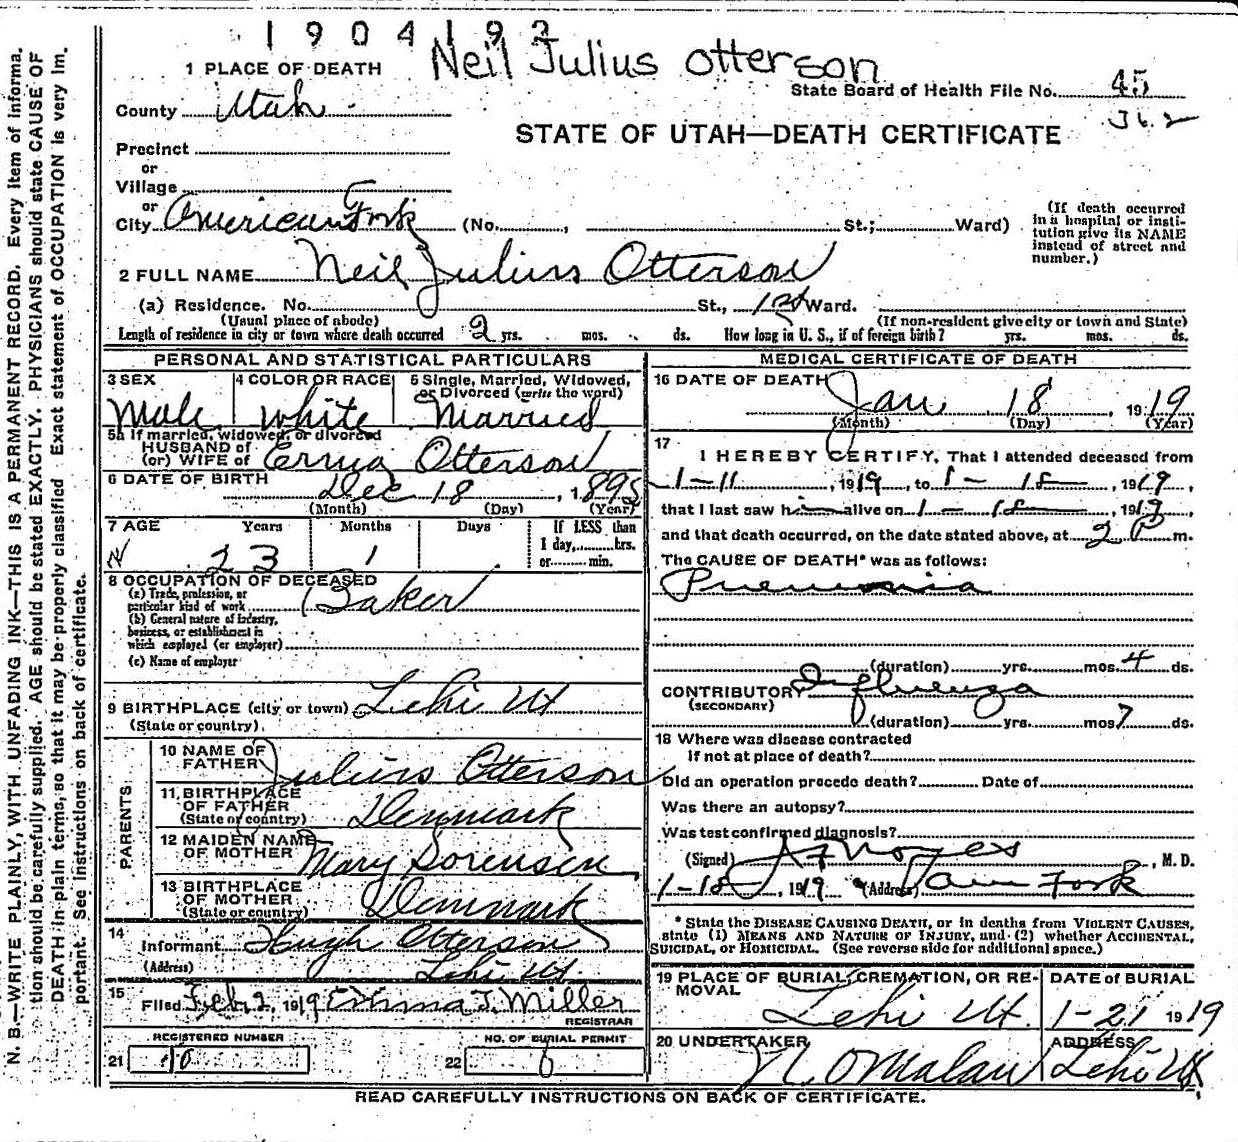 1904193
Neil Julius Otterson
1 PLACE OF DEATH
State Board of Health File No. 45
County Utah
STATE OF UTAH—DEATH CERTIFICATE
Precinct
or
Village
or
City American Fork (No. , St.; Ward)
(If death occurred in a hospital or insti-
tution give its NAME
instead of street and
number.)
2 FULL NAME Neil Julius Otterson
(a) Residence. No. St., 1st Ward.
(Usual place of abode)
(If non-resident give city or town and State)
Length of residence in city or town where death occurred 2 yrs. mos. ds. How long in U. S., if of foreign birth? yrs. mos. ds.
PERSONAL AND STATISTICAL PARTICULARS
3 SEX
Male
4 COLOR OR RACE
White
5 Single, Married, Widowed,
or Divorced (write the word)
Married
5a If married, widowed, or divorced
HUSBAND of
(or) WIFE of Erma Otterson
6 DATE OF BIRTH
Dec 18, 1895
(Month) (Day) (Year)
7 AGE Years Months Days
23 1
If LESS than
1 day, hrs.
or min.
8 OCCUPATION OF DECEASED
(a) Trade, profession, or
particular kind of work Baker
(b) General nature of industry,
business, or establishment in
which employed (or employer)
(c) Name of employer
9 BIRTHPLACE (city or town) Lehi Ut
(State or country)
PARENTS
10 NAME OF
FATHER Julius Otterson
11 BIRTHPLACE
OF FATHER
(State or country) Denmark
12 MAIDEN NAME
OF MOTHER Mary Sorensen
13 BIRTHPLACE
OF MOTHER
(State or country) Denmark
14
Informant Hugh Otterson
(Address) Lehi Ut.
15
Filed Feb. 2, 1919 Emma J. Miller
REGISTRAR
REGISTERED NUMBER
21 10
NO. OF BURIAL PERMIT
22 6
MEDICAL CERTIFICATE OF DEATH
16 DATE OF DEATH
Jan 18, 1919
(Month) (Day) (Year)
17
I HEREBY CERTIFY, That I attended deceased from
1-11, 1919, to 1-18, 1919,
that I last saw him alive on 1-18, 1919
and that death occurred, on the date stated above, at 2 P m.
The CAUSE OF DEATH* was as follows:
Pneumonia
(duration) yrs. mos. 4 ds.
CONTRIBUTORY Influenza
(SECONDARY)
(duration) yrs. mos 7 ds.
18 Where was disease contracted
if not at place of death?
Did an operation precede death? Date of
Was there an autopsy?
Was test confirmed diagnosis?
(Signed) Noyes, M. D.
1-18, 1919 (Address) Am Fork
* State the DISEASE CAUSING DEATH, or in deaths from VIOLENT CAUSES,
state (1) MEANS AND NATURE OF INJURY, and (2) whether ACCIDENTAL,
SUICIDAL, or HOMICIDAL. (See reverse side for additional space.)
19 PLACE OF BURIAL, CREMATION, OR RE-
MOVAL
Lehi Ut.
DATE OF BURIAL
1-21 1919
20 UNDERTAKER
ADDRESS
Lehi Ut
READ CAREFULLY INSTRUCTIONS ON BACK OF CERTIFICATE.
N. B.—WRITE PLAINLY, WITH UNFADING INK—THIS IS A PERMANENT RECORD. Every item of informa-
tion should be carefully supplied. AGE should be stated EXACTLY. PHYSICIANS should state CAUSE OF
DEATH in plain terms, so that it may be properly classified. Exact statement of OCCUPATION is very im-
portant. See instructions on back of certificate.